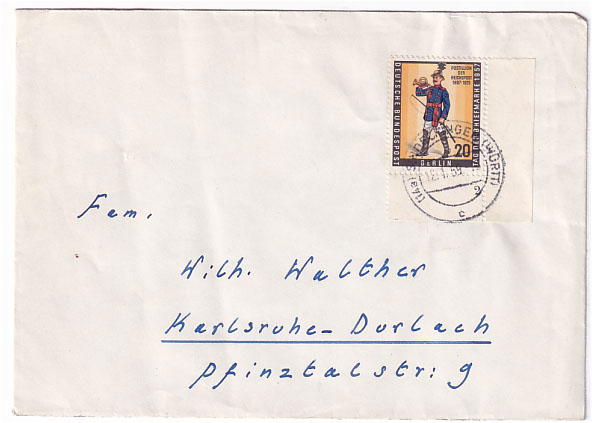 DEUTSCHE BUNDESPOST
POSTILLION
DER
REICHSPOST
TAG DER BRIEFMARKE 1957
20
BERLIN
(14a)
(WÜRTT)
c
Fam.
Wilh. Walther
Karlsruhe-Durlach
Pfinztalstr: 9